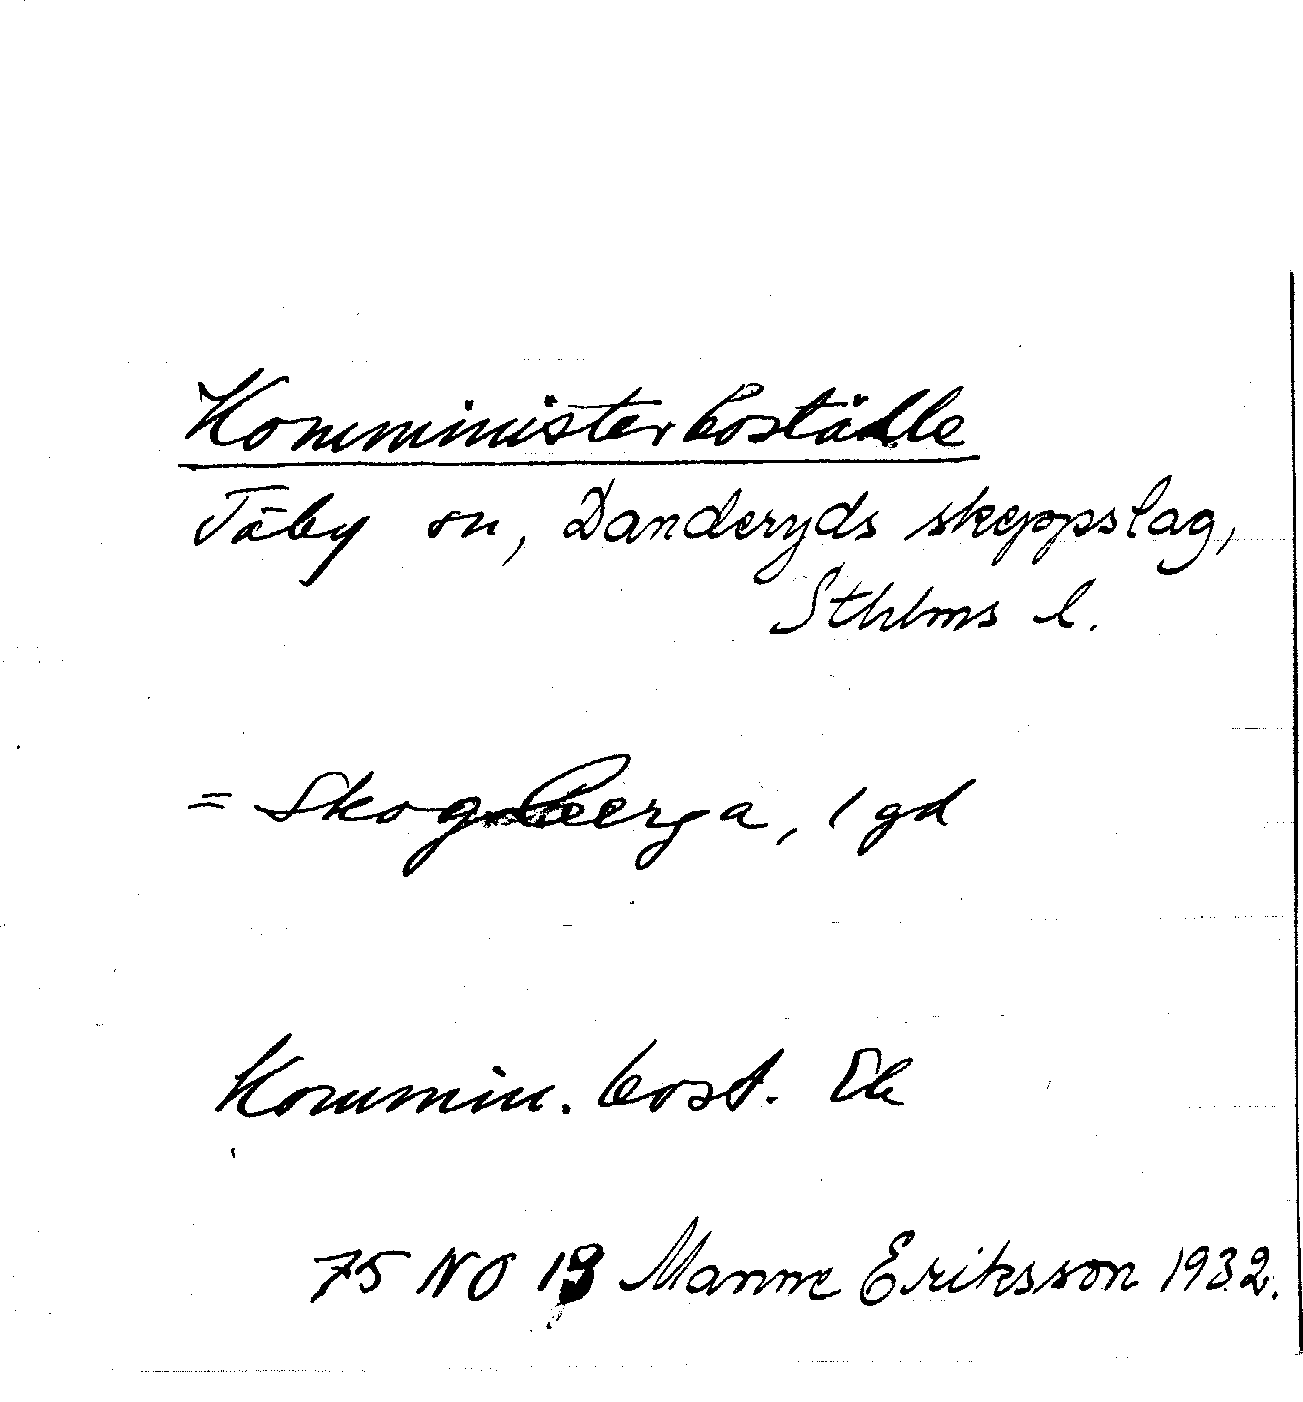 Komministerboställe
Täby sn, Danderyds skeppslag,
Sthlms l.
= Skogberga, 1 gd
Kommin. bost. Ek
75 NO 19 Manne Eriksson 1932.